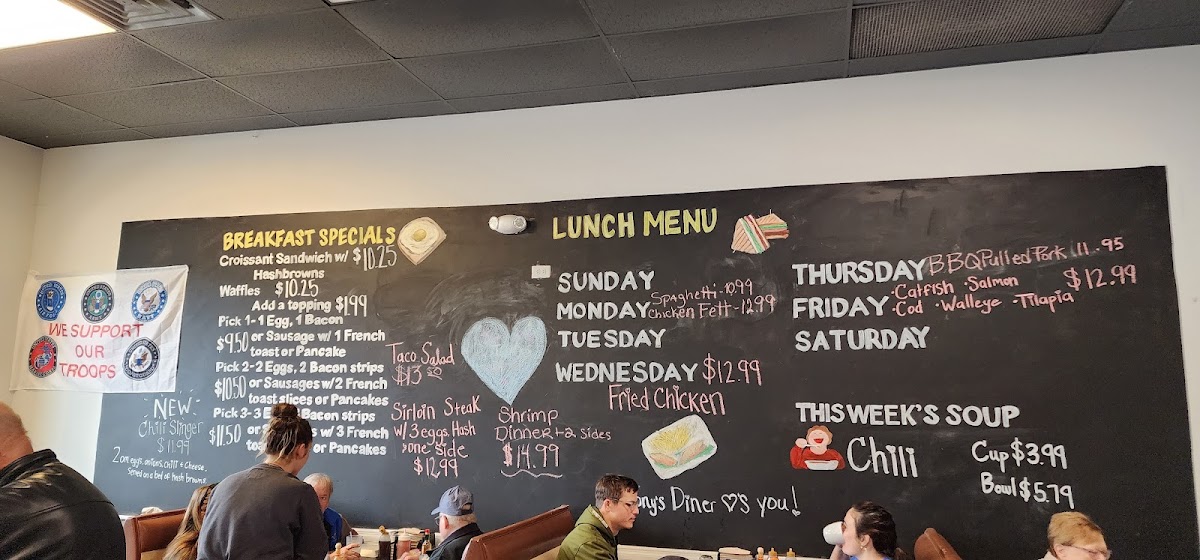 WE SUPPORT
OUR
TROOPS
NEW
Chili Slinger
$11.99
Served on a bed of hash browns
BREAKFAST SPECIALS
Croissant Sandwich w/ $10.25
Hashbrowns
Waffles $10.25
Add a topping $1.99
Pick 1-1 Egg, 1 Bacon
$9.50 or Sausage w/ 1 French
toast or Pancake
Pick 2-2 Eggs, 2 Bacon strips
$10.50 or Sausages w/2 French
toast slices or Pancakes
Pick 3-3 Bacon strips
$11.50 or w/ 3 French
or Pancakes
Taco Salad
$13
Sirloin Steak
w/3 eggs, Hash
one side
$12.99
Shrimp
Dinner + 2 sides
$14.99
LUNCH MENU
SUNDAY
MONDAY Spaghetti-10.99
Chicken Fett-12.99
TUESDAY
WEDNESDAY $12.99
Fried Chicken
ny's Diner ♡'s you!
THURSDAY BBQ Pulled Pork 11.95
FRIDAY •Catfish •Salmon $12.99
•Cod •Walleye •Tilapia
SATURDAY
THIS WEEK'S SOUP
Chili
Cup $3.99
Bowl $5.79